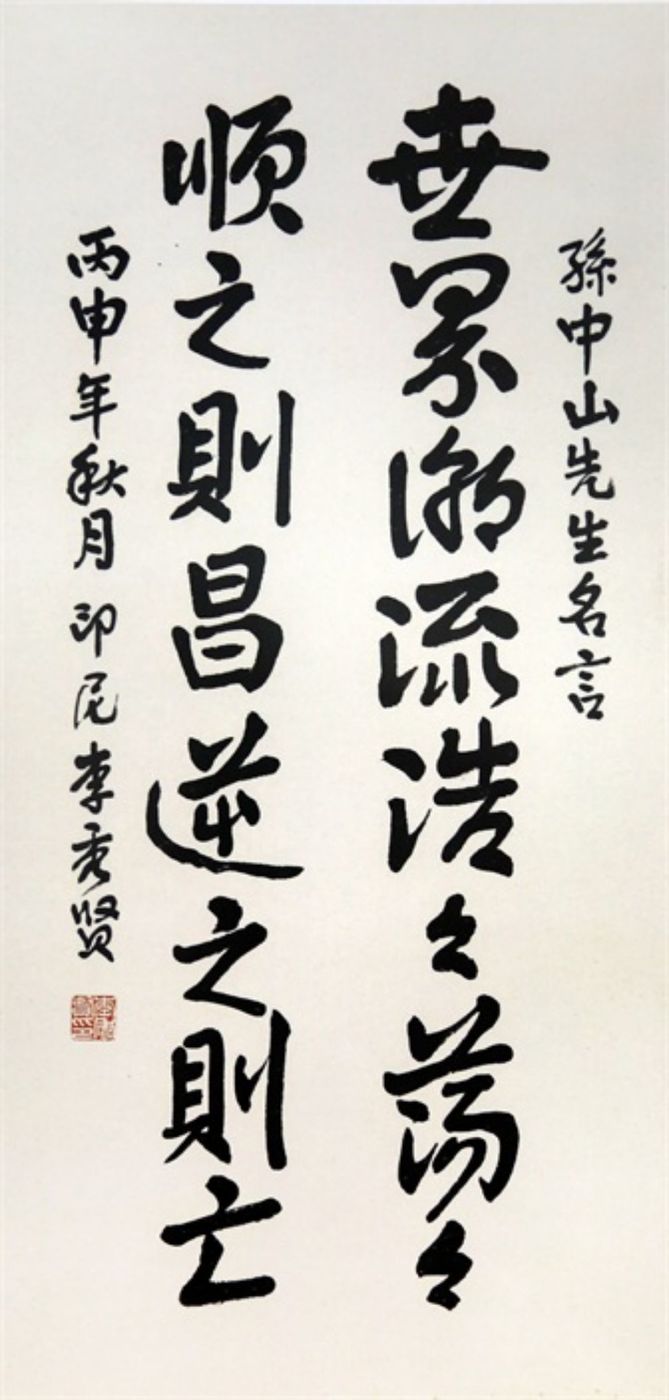 孫中山先生名言
世界潮流浩々蕩々
順之則昌逆之則亡
丙申年秋月 印尼李秀贤